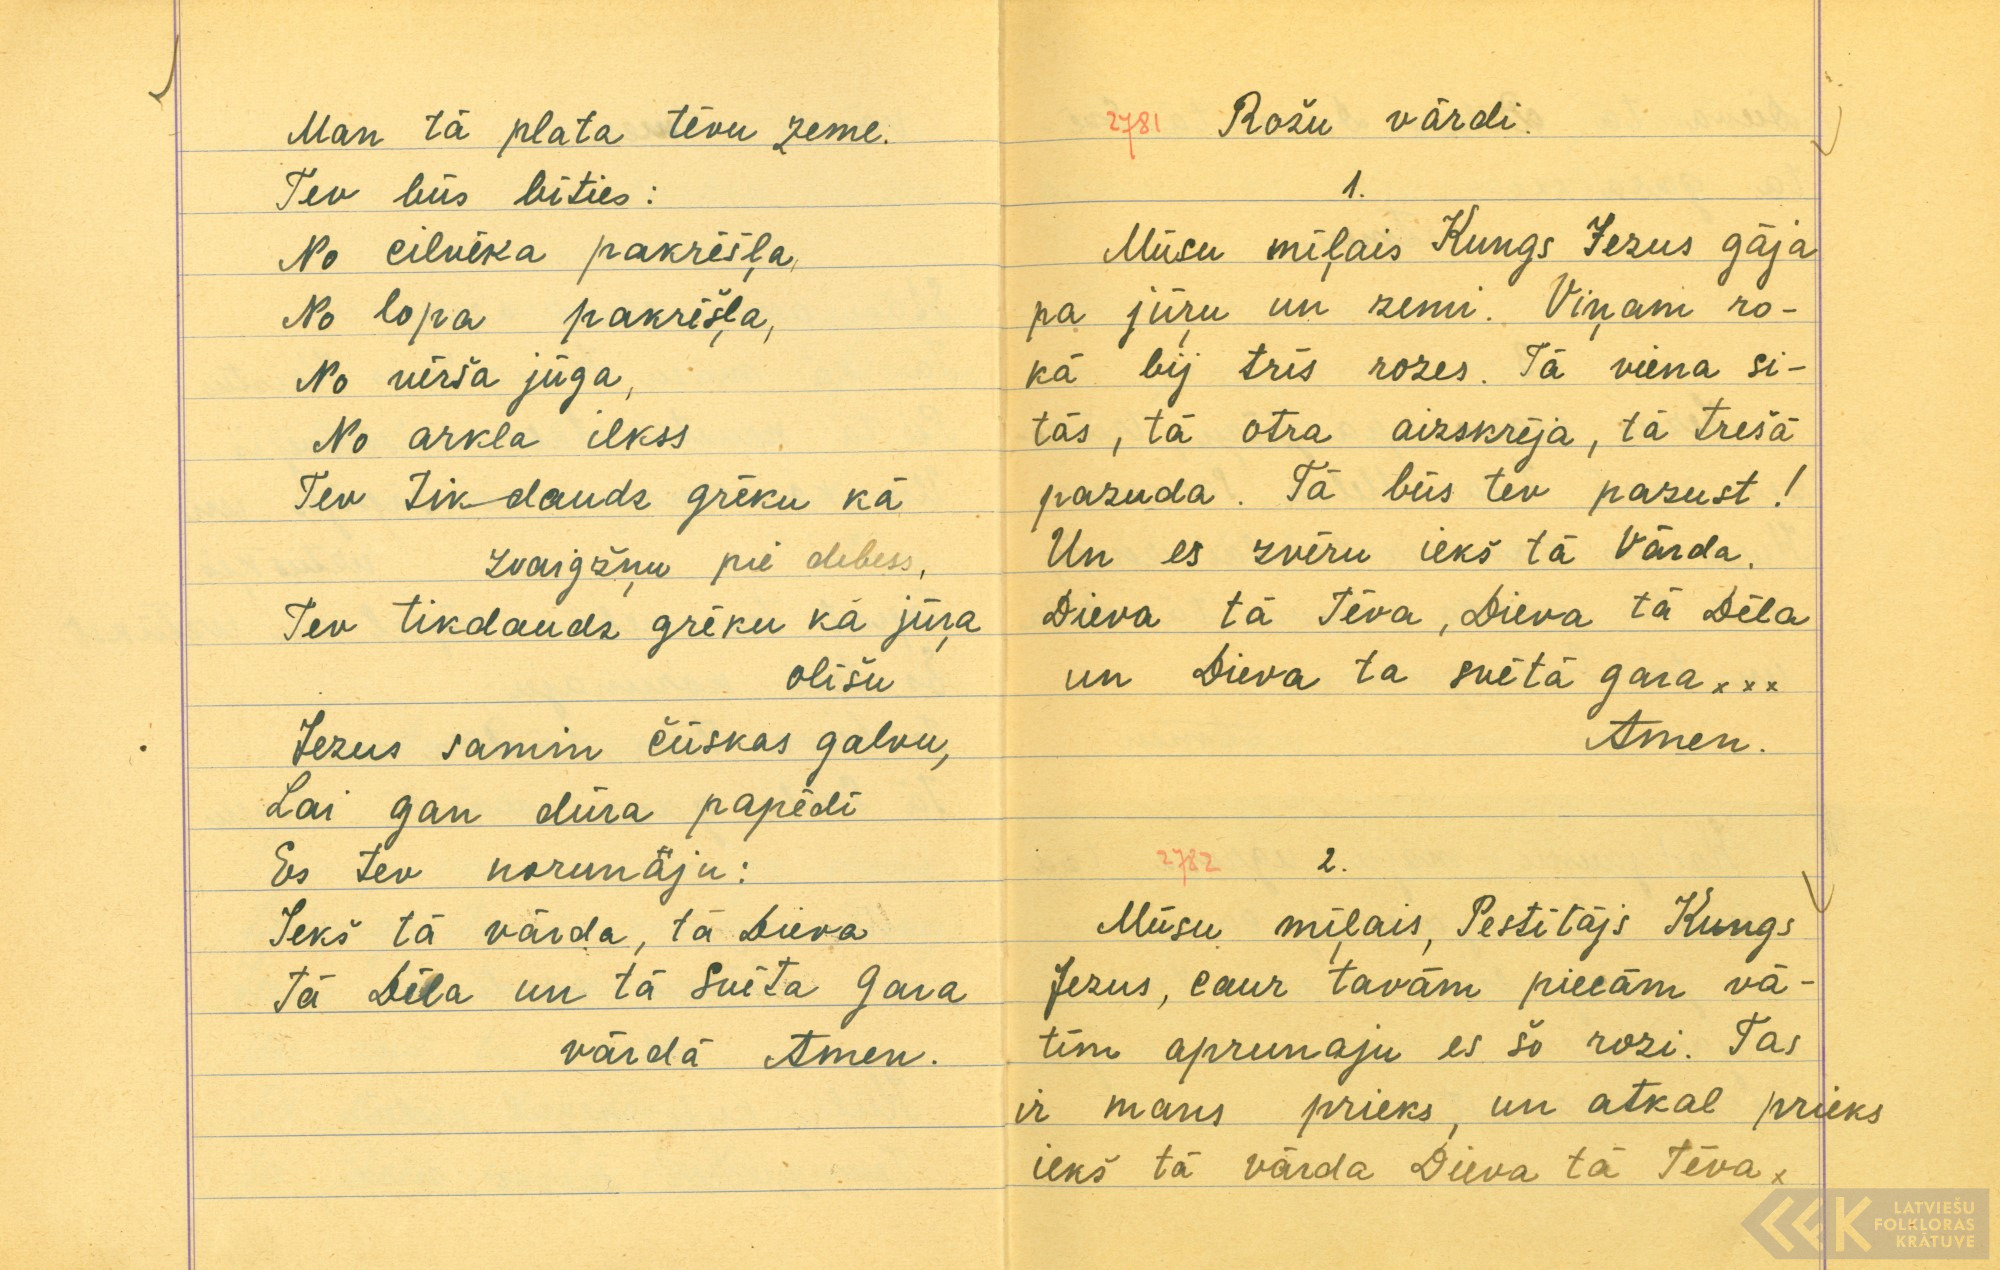 Man tā plata tēvu zeme.
Tev būs bīties:
No cilvēka pakrēšļa,
No lopa pakrēšļa,
No vērša jūga,
No arkla ilkss
Tev tikdaudz grēku kā
zvaigžņu pie debess,
Tev tikdaudz grēku kā jūŗa
olišu
Jezus samin čūskas galvu,
Lai gan dūra papēdī
Es tev norunāju:
Iekš tā vārda, tā Dieva
Tā Dēla un tā Svēta Gara
vārdā Amen.
2781 Rožu vārdi.
1.
Mūsu mīļais Kungs Jezus gāja
pa jūŗu un zemi. Viņam ro-
kā bij trīs rozes. Tā viena si-
tās, tā otra aizskrēja, tā trešā
pazuda. Tā būs tev pazust!
Un es zvēru iekš tā Vārda.
Dieva tā Tēva, Dieva tā Dēla
un Dieva ta svētā gara xxx
Amen.
2782 2.
Mūsu mīļais, Pestītājs Kungs
Jezus, caur tavām piecām vā-
tīm aprunaju es šo rozi. Tas
ir mans prieks, un atkal prieks
iekš tā vārda Dieva tā Tēva x
LATVIEŠU
FOLKLORAS
KRĀTUVE